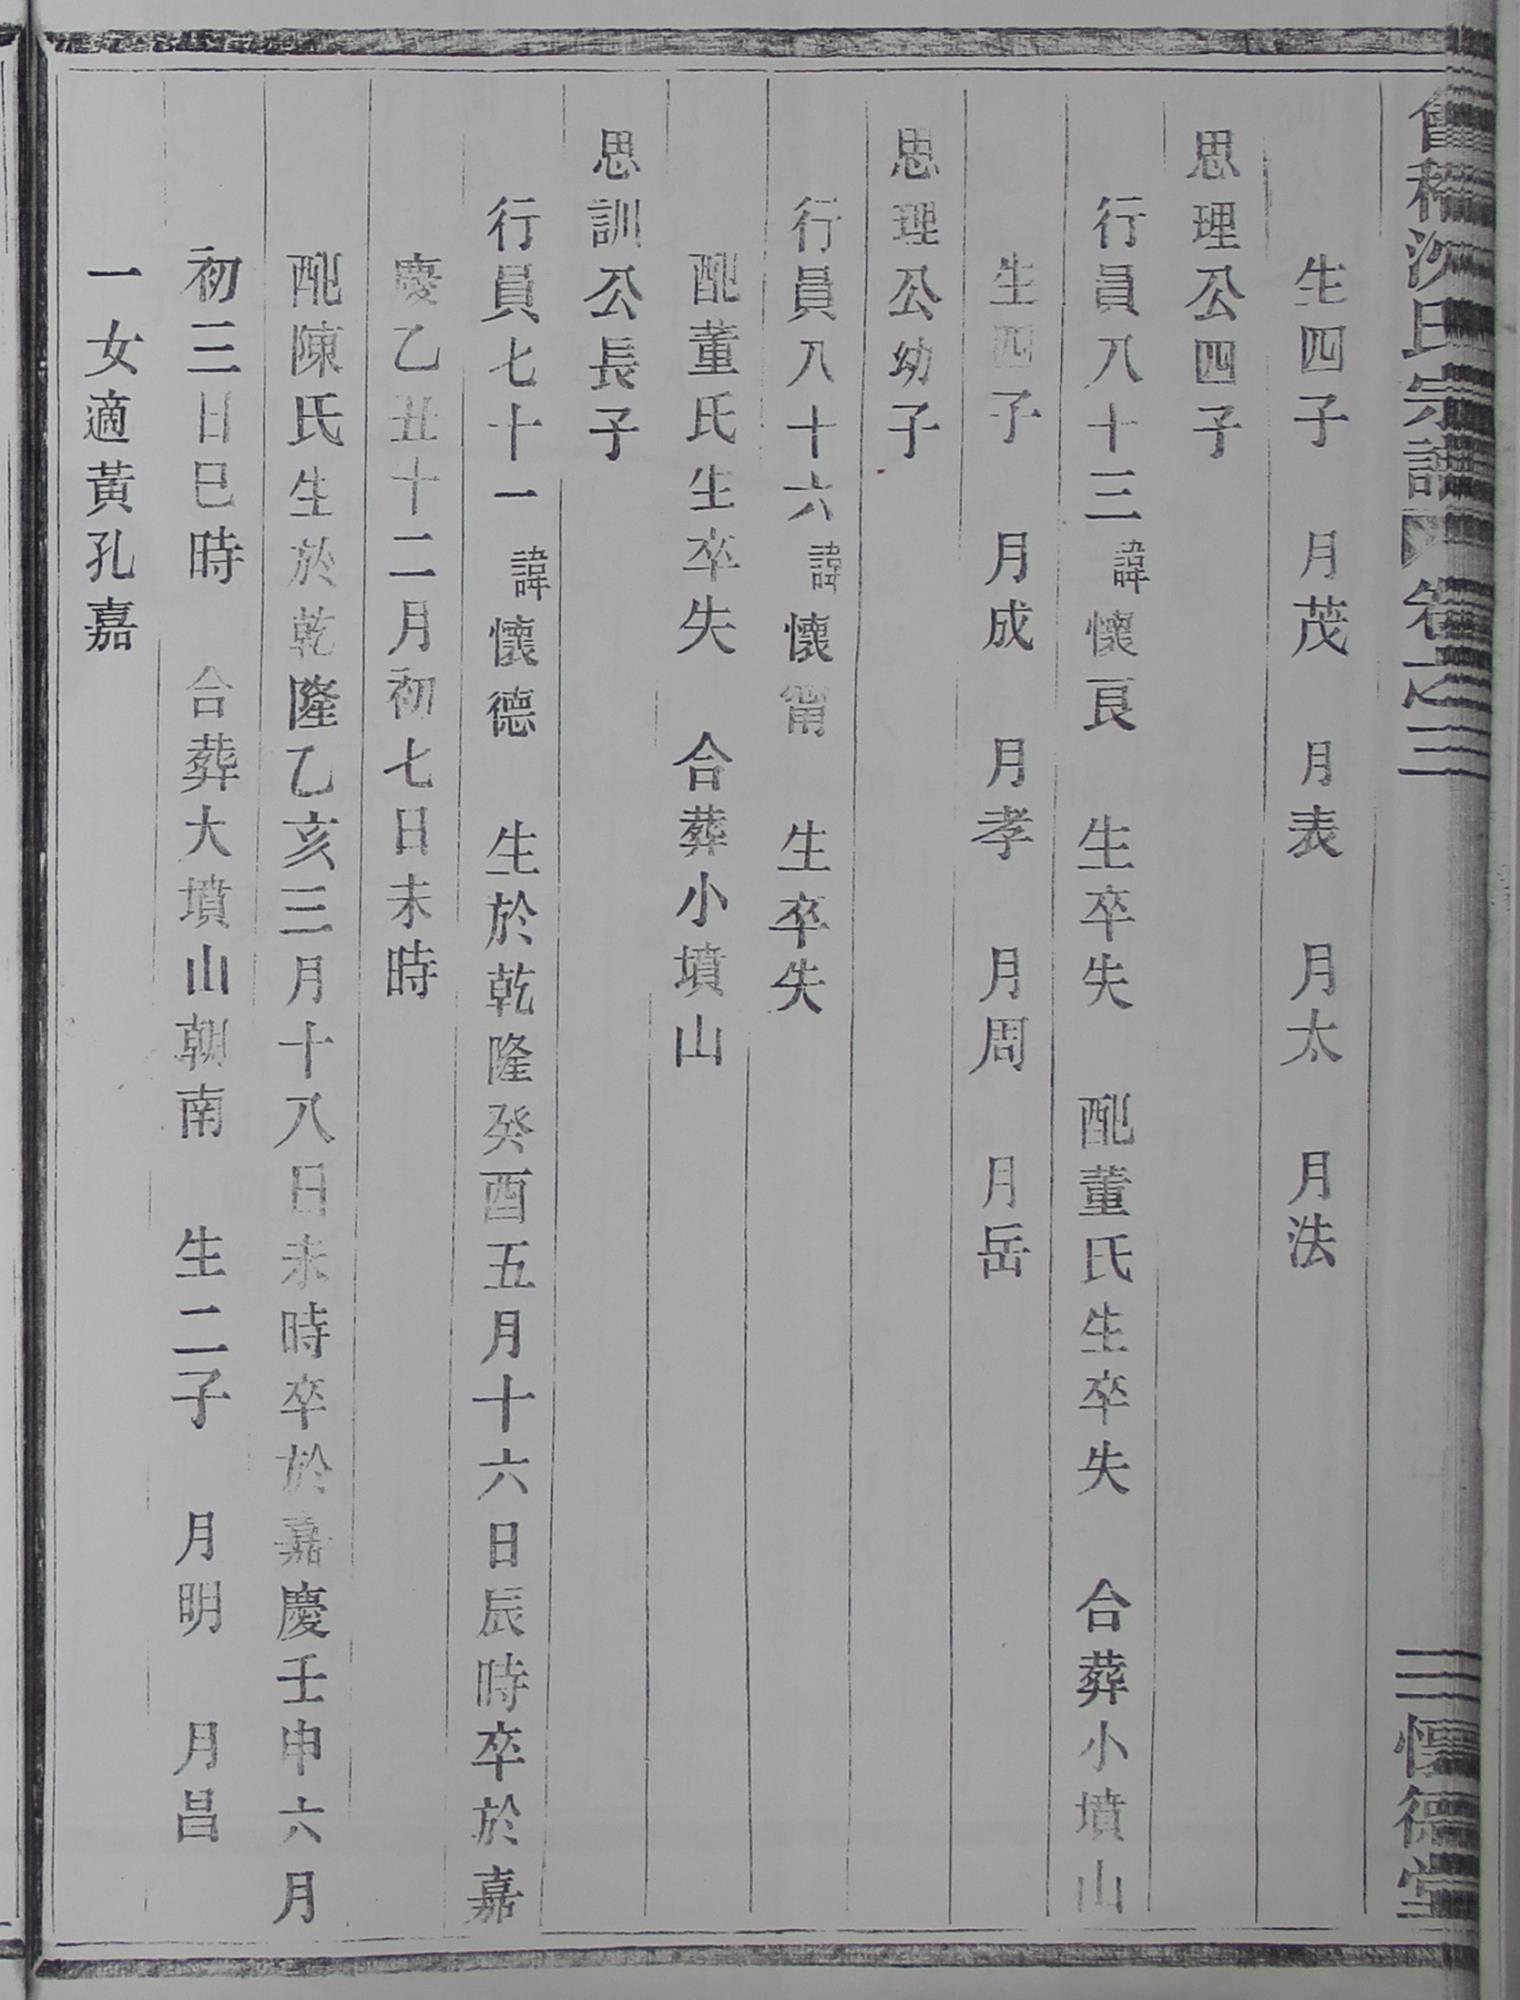 會稽沈氏宗譜 卷之三 三 懷德堂
生四子 月茂 月表 月太 月法
思理公四子
行員八十三諱懷良 生卒失 配董氏生卒失 合葬小墳山
生四子 月成 月孝 月周 月岳
思理公幼子
行員八十六諱懷甯 生卒失
配董氏生卒失 合葬小墳山
思訓公長子
行員七十一諱懷德 生於乾隆癸酉五月十六日辰時卒於嘉
慶乙丑十二月初七日未時
配陳氏生於乾隆乙亥三月十八日未時卒於嘉慶壬申六月
初三日巳時 合葬大墳山朝南 生二子 月明 月昌
一女適黃孔嘉